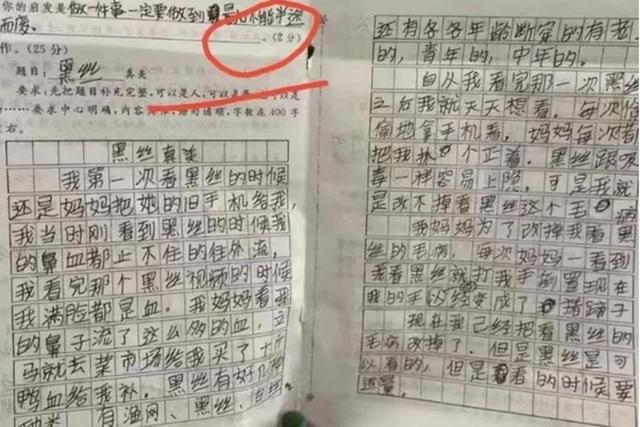 你的启发是做一件事一定要做到最后不能半途
而废。(2分)
作。(25分)
题目:黑丝真美
要求:先把题目补充完整,可以是人,可以是 以是
……要求中心明确,内容 语句通顺,字数在400字
左右。
黑丝真美
我第一次看黑丝的时候
还是妈妈把她的旧手机给我,
我当时刚看到黑丝的时候我
的鼻血都止不住的往外流,
我看完那个黑丝视频的时候
我满脸都是血。我妈妈看我
的鼻子流了这么多的血,立
马就去菜市场给我买了十斤
鸭血给我补。黑丝有好几种
种类,有渔网、黑丝、
还有各各年龄断穿的有老
的,青年的,中年的。
自从我看完那一次黑丝
之后我就天天想看。每次偷
偷地拿手机看,妈妈每次都
把我抓个正着。黑丝跟吸
毒一样容易上隐,可是我就
是改不掉看黑丝这个毛病
我妈妈为了改掉我看黑
丝的毛病,每次妈妈一看到
我看黑丝就打我手倒置现在
我的手以经变成了猪蹄子
现在我己经把看黑丝的
毛病改掉了。但是黑丝是可
以看的,但是看的时候要
适量。